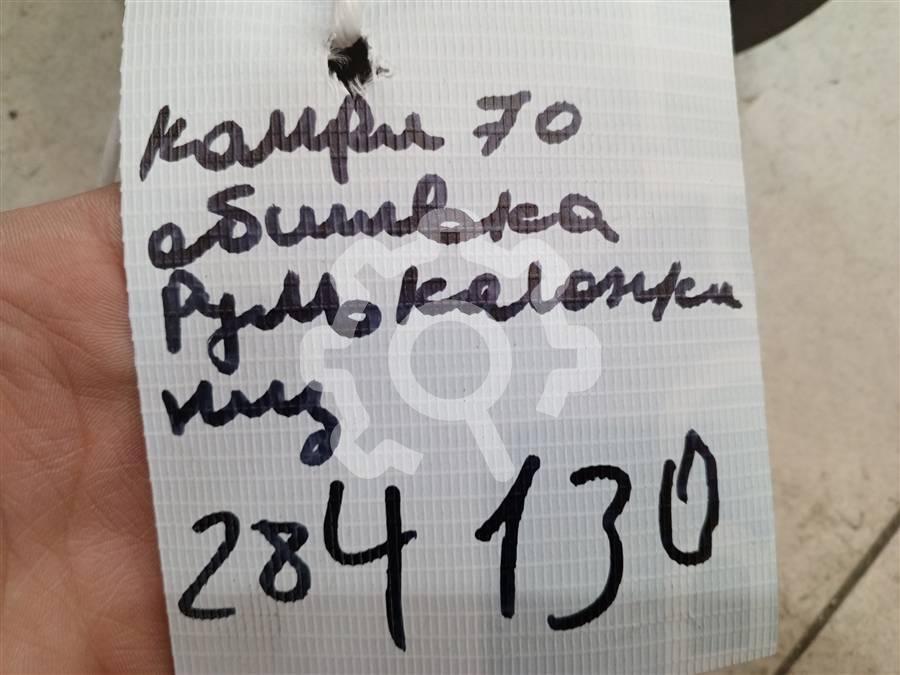 камри 70
обшивка
Руль колонки
низ
284130